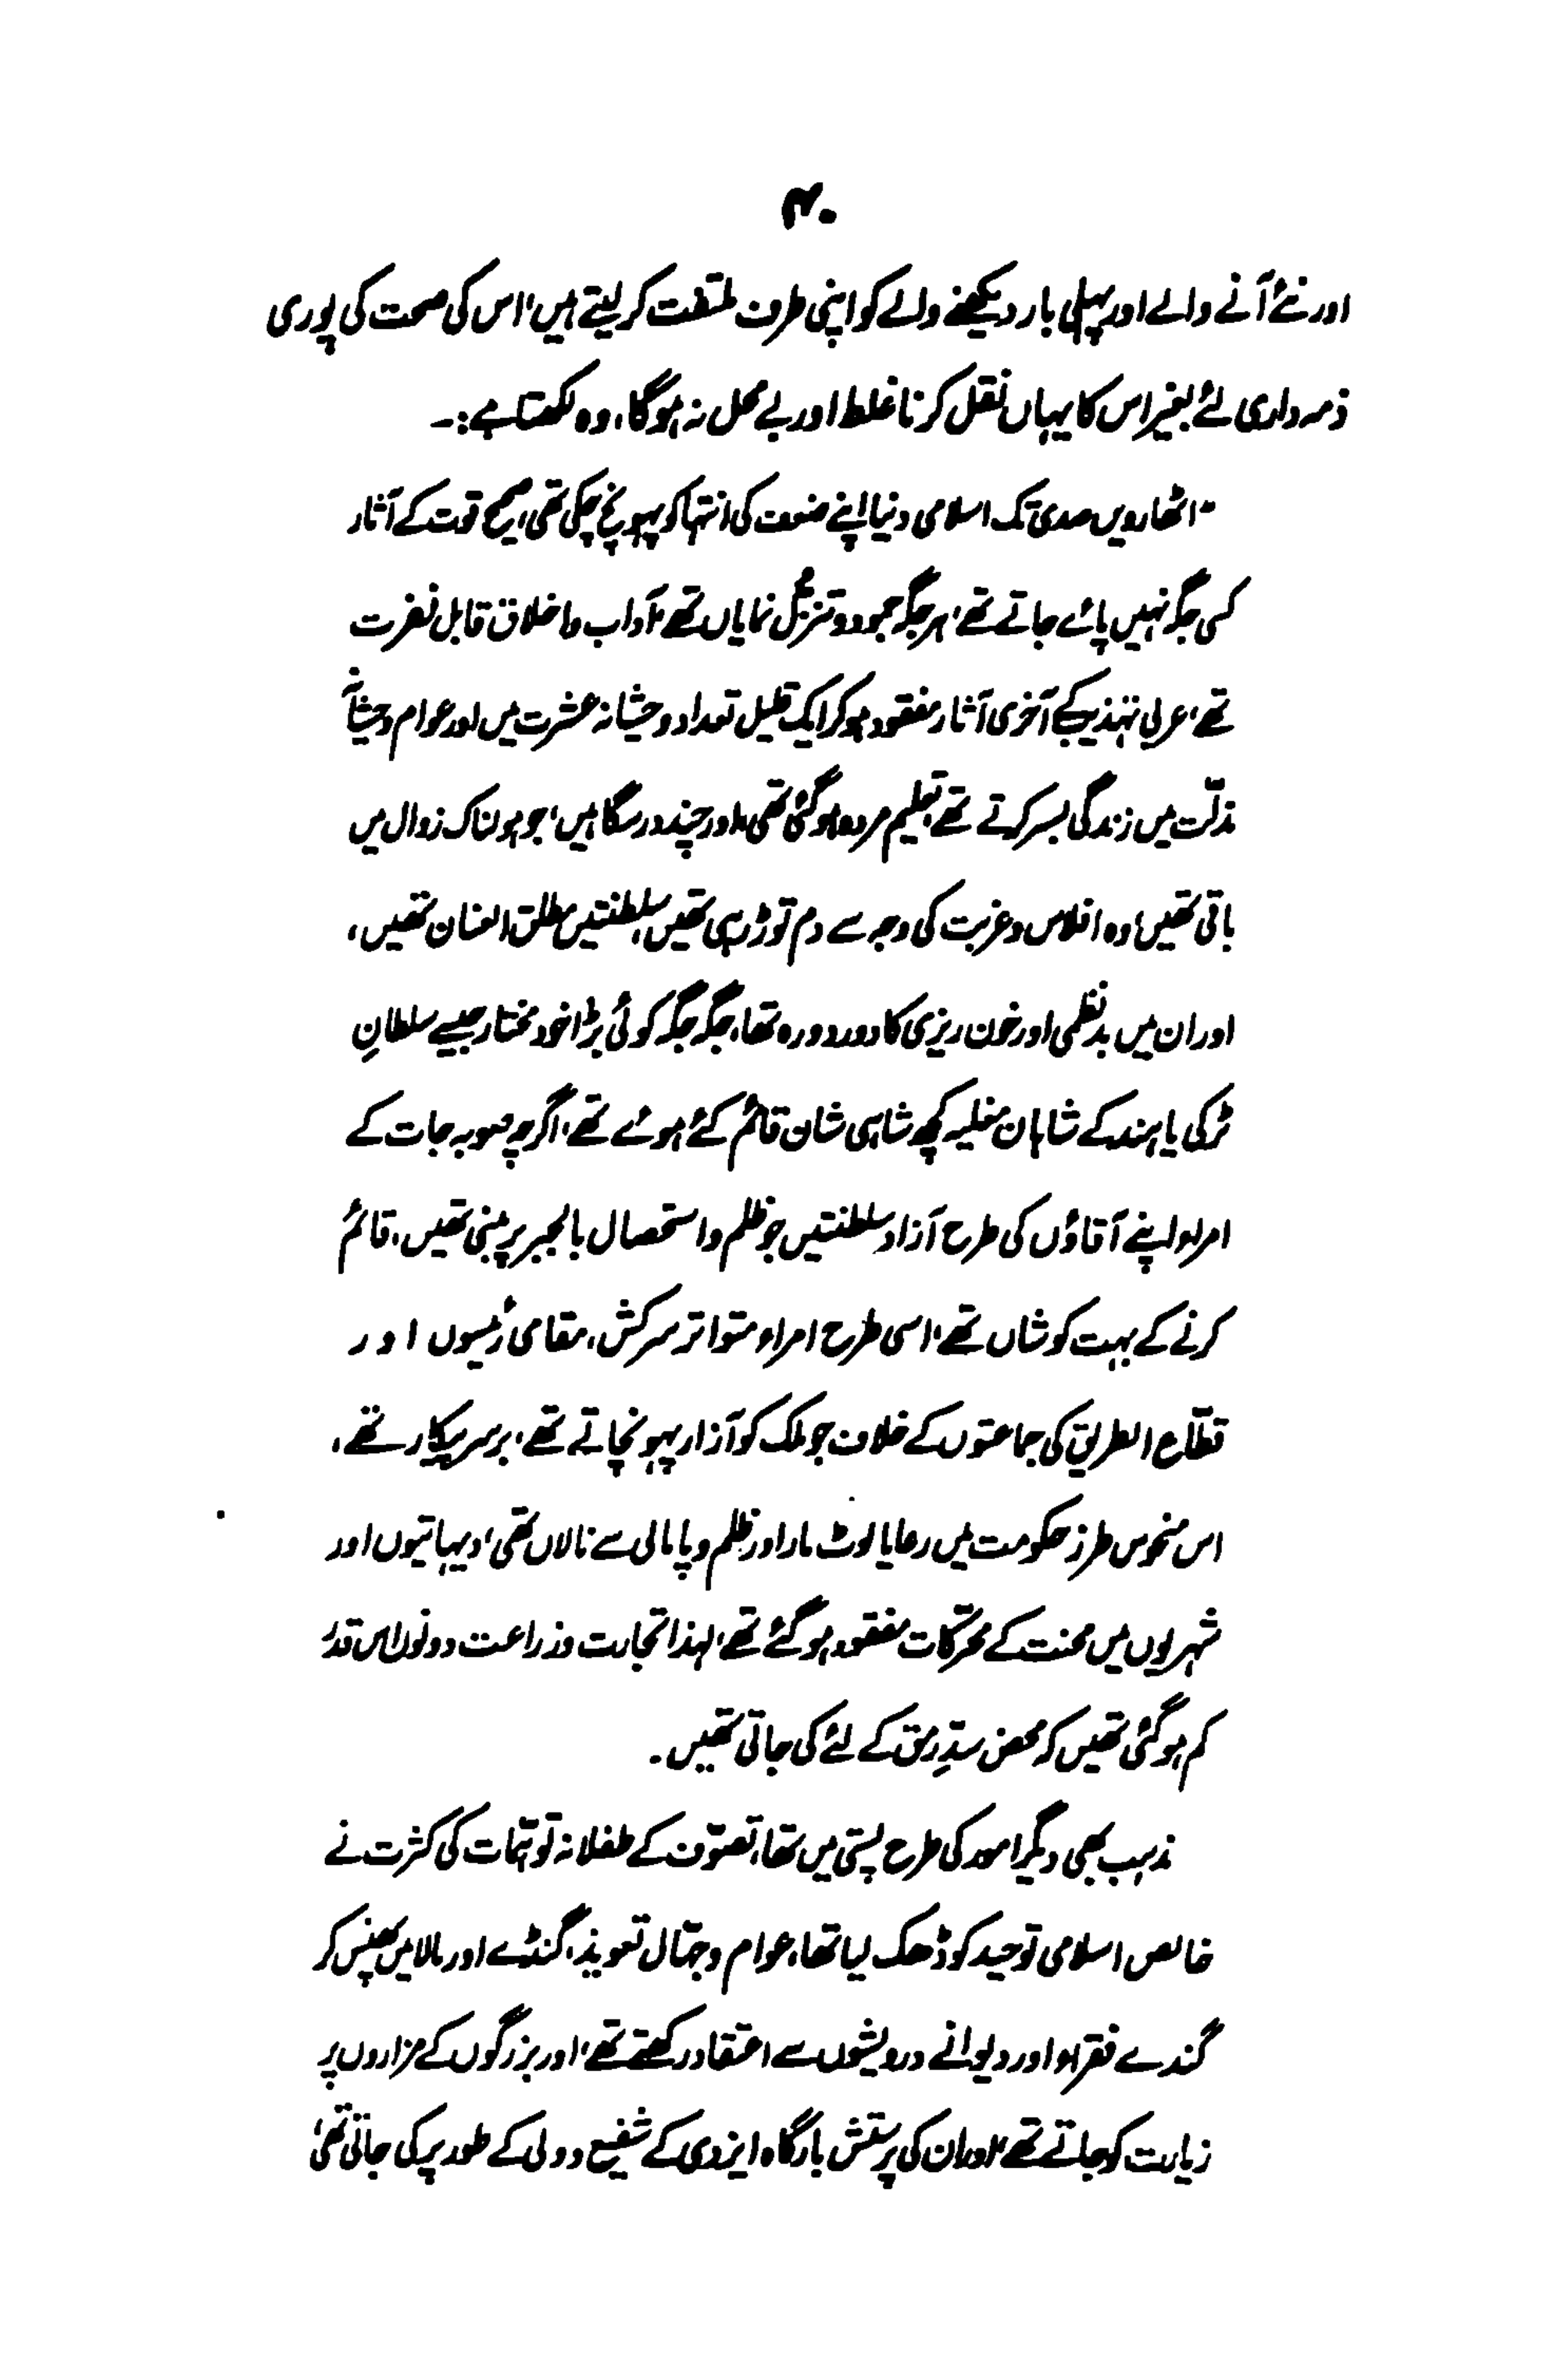 ۴۰
اور نئے آنے والے اور پہلی بار دیکھنے والے کو اپنی طرف ملتفت کر لیتے ہیں، اس کی صحت کی پوری
ذمہ داری لئے بغیر اس کا یہاں نقل کرنا غلط اور بے محل نہ ہوگا، وہ لکھتا ہے:۔
"اٹھارویں صدی تک اسلامی دنیا اپنے ضعف کی انتہا کو پہونچ چکی تھی، صحیح قوت کے آثار
کسی جگہ نہیں پائے جاتے تھے، ہر جگہ جمود و تنزل نمایاں تھے، آداب و اخلاق قابل نفرت
تھے، عربی تہذیب کے آخری آثار مفقود ہو کر ایک قلیل تعداد وحشیانہ عشرت میں اور عوام وحشیانہ
مذلّت میں زندگی بسر کرتے تھے، تعلیم مردہ ہو گئی تھی، اور چند درسگاہیں، جو ہولناک زوال میں
باقی تھیں، وہ افلاس و غربت کی وجہ سے دم توڑ رہی تھیں، سلطنتیں مطلق العنان تھیں،
اور ان میں بدنظمی اور خون ریزی کا دور دورہ تھا، جگہ جگہ کوئی بڑا خود مختار جیسے سلطانِ
ٹرکی یا ہند کے شاہان مغلیہ کچھ شاہی شان قائم کئے ہوئے تھے، اگرچہ صوبہ جات کے
امراء اپنے آقاؤں کی طرح آزاد سلطنتیں جو ظلم و استحصال بالجبر پر مبنی تھیں، قائم
کرنے کے بہت کوشاں تھے، اسی طرح امراء متواتر سرکش، مقامی رئیسوں اور
قطّاع الطریق کی جماعتوں کے خلاف جو ملک کو آزار پہونچاتے تھے، برسر پیکار تھے،
اس منحوس طرز حکومت میں رعایا لوٹ مار اور ظلم و پامالی سے نالاں تھی، دیہاتیوں اور
شہریوں میں محنت کے محرّکات مفقود ہو گئے تھے، لہذا تجارت و زراعت دونوں اس قدر
کم ہو گئی تھیں کہ محض سدِّ رمق کے لئے کی جاتی تھیں۔
مذہب بھی دیگر امور کی طرح پستی میں تھا، تصوّف کے طفلانہ توہّمات کی کثرت نے
خالص اسلامی توحید کو ڈھک لیا تھا، عوام و جہّال تعویذ، گنڈے اور مالا میں پھنس کر
گندے فقراء اور دیوانے درویشوں سے اعتقاد رکھتے تھے، اور بزرگوں کے مزاروں پر
زیارت کو جاتے تھے، اور ان کی پرستش بارگاہ ایزدی کے شفیع و ولی کے طور پر کی جاتی تھی،